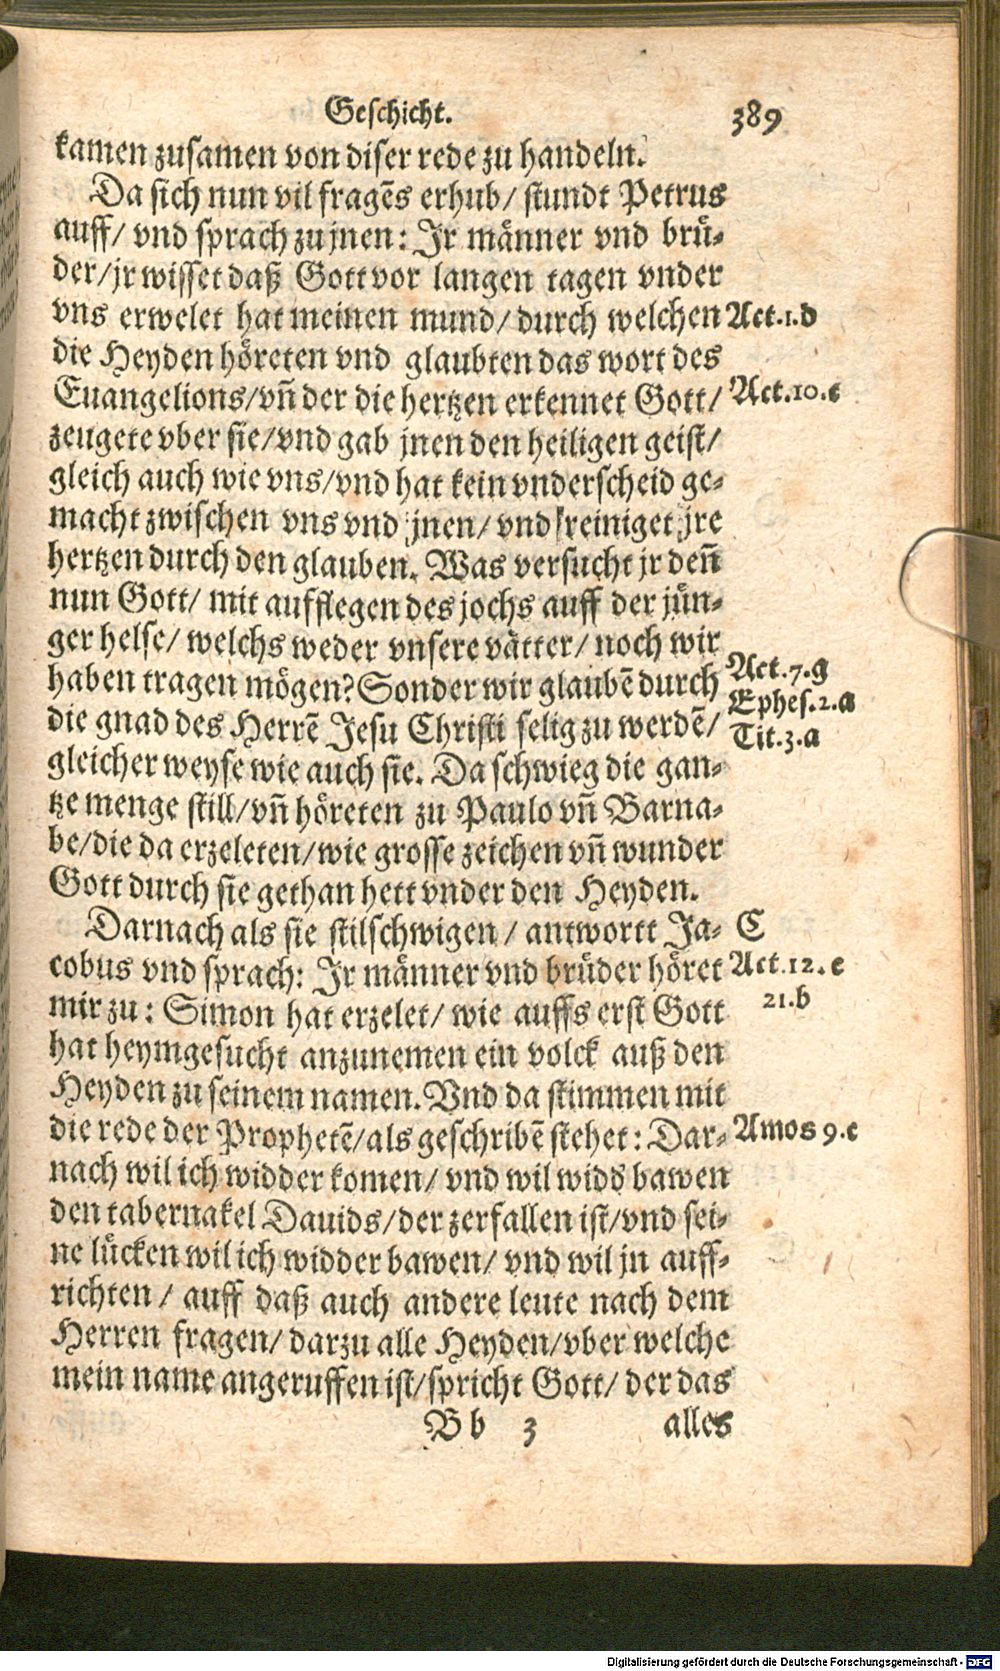 Geschicht. 389
kamen zusamen von diser rede zu handeln.
Da sich nun vil fragẽs erhub/ stundt Petrus
auff/ vnd sprach zu jnen: Jr männer vnd brü-
der/ jr wisset daß Gott vor langen tagen vnder
vns erwelet hat meinen mund/ durch welchen Act.1.d
die Heyden höreten vnd glaubten das wort des
Euangelions/ vñ der die hertzen erkennet Gott/ Act.10.e
zeugete vber sie/ vnd gab jnen den heiligen geist/
gleich auch wie vns/ vnd hat kein vnderscheid ge-
macht zwischen vns vnd jnen/ vnd reiniget jre
hertzen durch den glauben. Was versucht jr deñ
nun Gott/ mit aufflegen des jochs auff der jün-
ger helse/ welchs weder vnsere vätter/ noch wir
haben tragen mögen? Sonder wir glaubẽ durch Act.7.g
die gnad des Herrẽ Jesu Christi selig zu werdẽ/ Ephes.2.a
gleicher weyse wie auch sie. Da schwieg die gan- Tit.3.a
tze menge still/ vñ höreten zu Paulo vñ Barna-
be/ die da erzeleten/ wie grosse zeichen vñ wunder
Gott durch sie gethan hett vnder den Heyden.
Darnach als sie stilschwigen/ antwortt Ja- C
cobus vnd sprach: Jr männer vnd brüder höret Act.12.e
mir zu: Simon hat erzelet/ wie auffs erst Gott 21.b
hat heymgesucht anzunemen ein volck auß den
Heyden zu seinem namen. Vnd da stimmen mit
die rede der Prophetẽ/ als geschribẽ stehet: Dar- Amos 9.c
nach wil ich widder komen/ vnd wil widd bawen
den tabernakel Dauids/ der zerfallen ist/ vnd sei-
ne lücken wil ich widder bawen/ vnd wil jn auff-
richten/ auff daß auch andere leute nach dem
Herren fragen/ darzu alle Heyden/ vber welche
mein name angeruffen ist/ spricht Gott/ der das
B b 3 alles
Digitalisierung gefördert durch die Deutsche Forschungsgemeinschaft - DFG